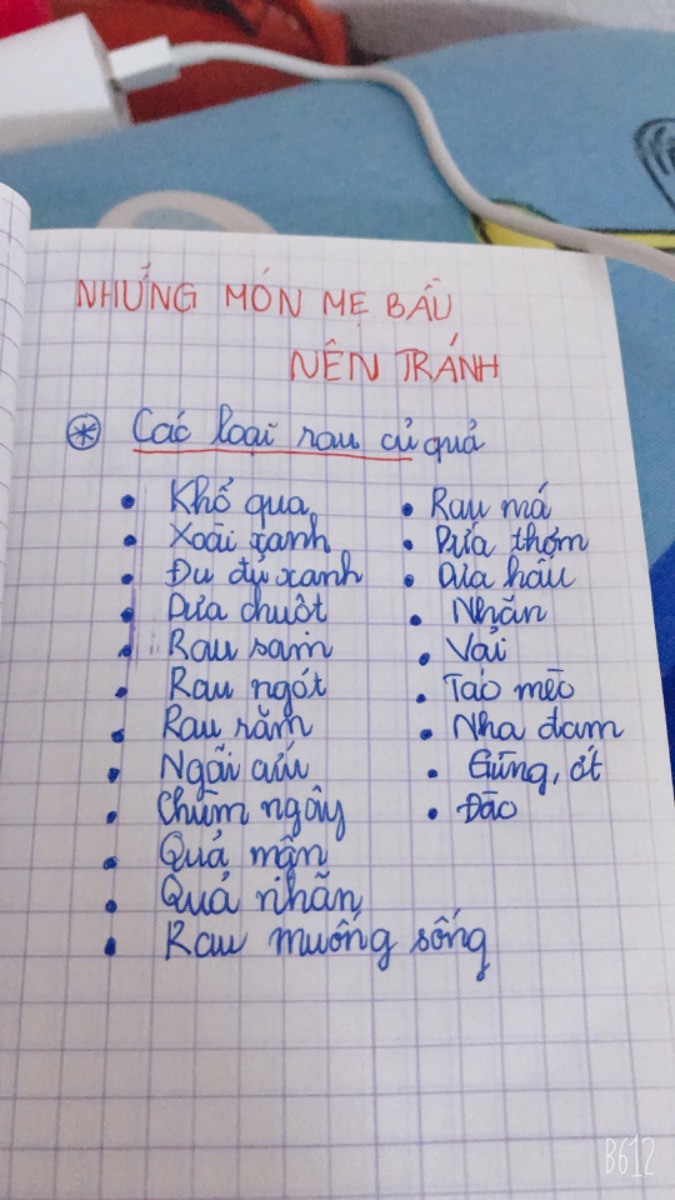 NHỮNG MÓN MẸ BẦU
NÊN TRÁNH
Các loại rau củ quả
Khổ qua
Xoài xanh
Đu đủ xanh
Dưa chuột
Rau sam
Rau ngót
Rau răm
Ngãi cứu
Chùm ngây
Quả mận
Quả nhãn
Rau muống sống
Rau má
Dứa thơm
Dưa hấu
Nhãn
Vải
Táo mèo
Nha đam
Gừng, ớt
Đào
B612